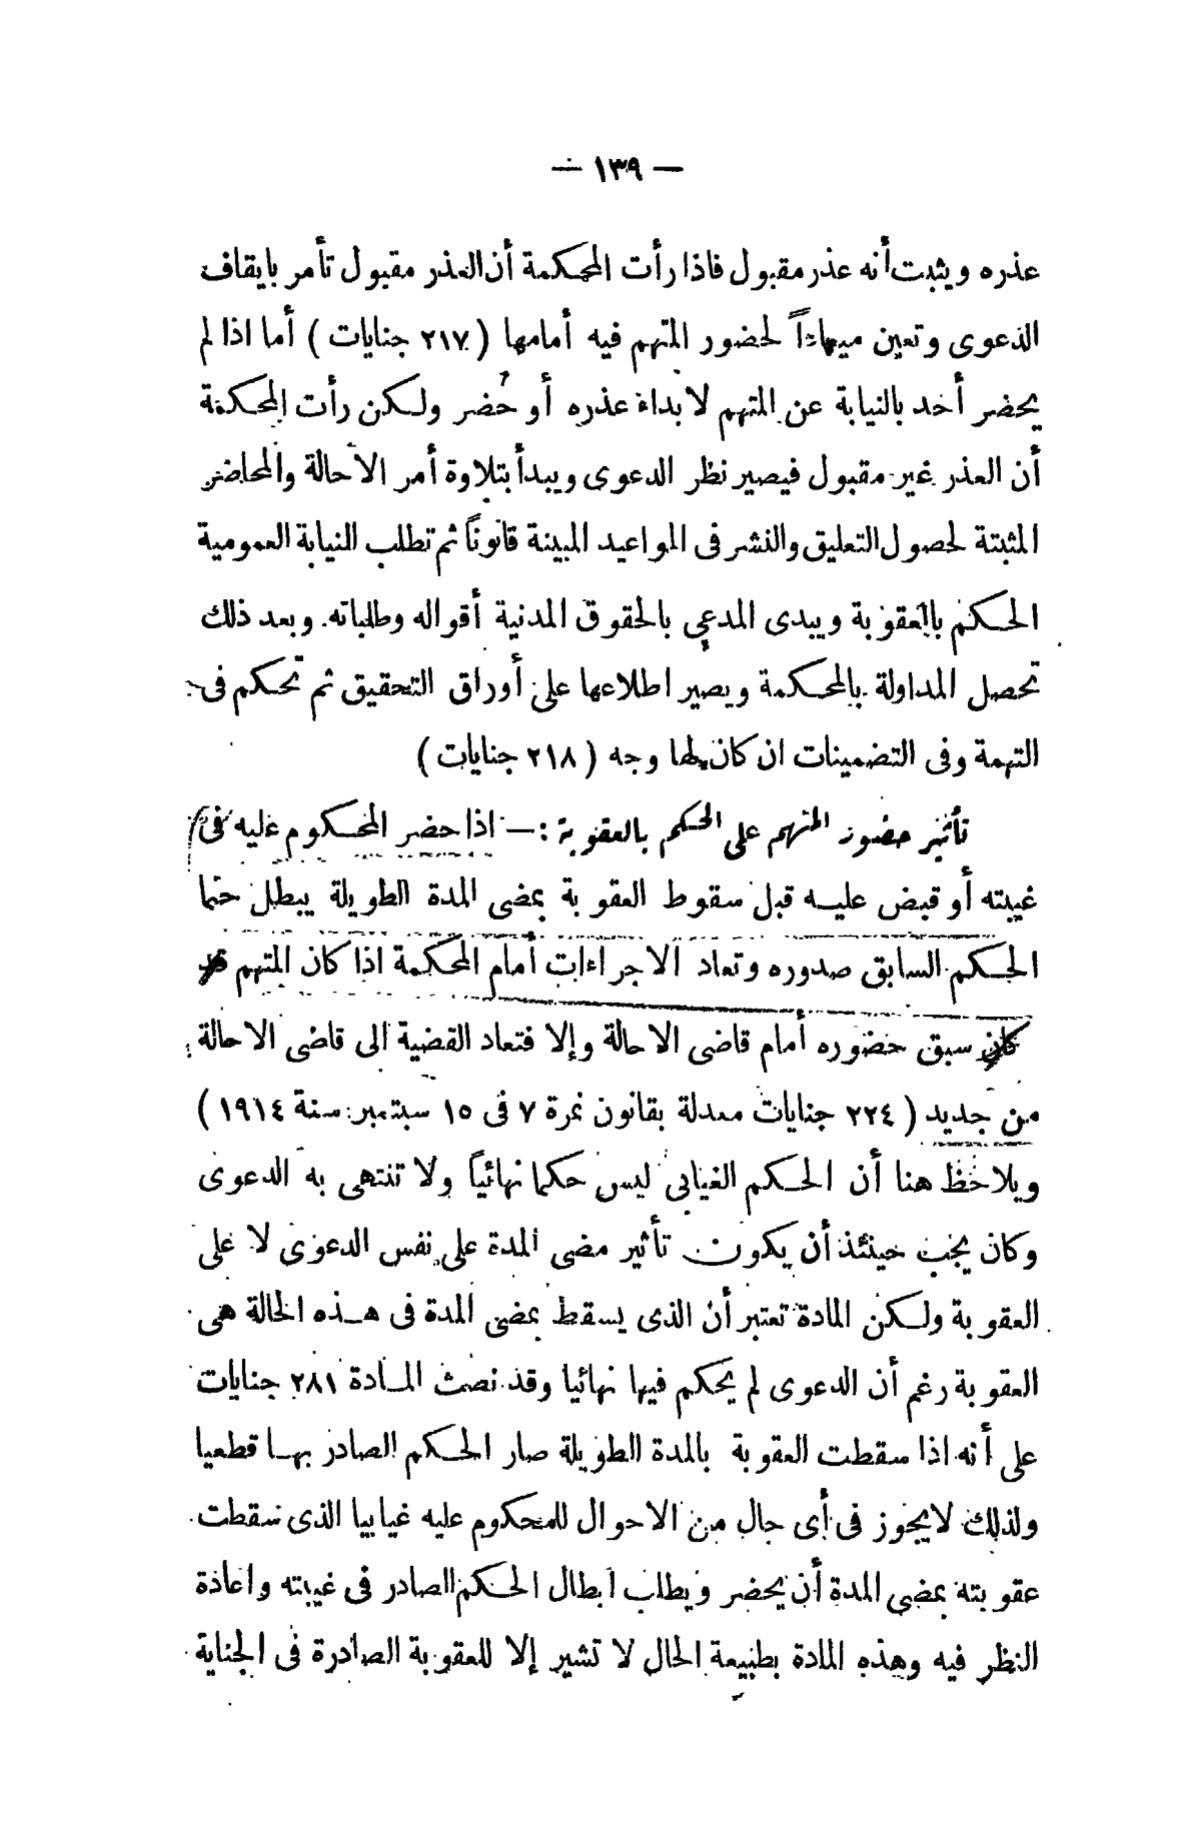 — ١٣٩ —
عذره ويثبت أنه عذر مقبول فاذا رأت المحكمة أن العذر مقبول تأمر بايقاف
الدعوى وتعين ميعاداً لحضور المتهم فيه أمامها ( ٢١٧ جنايات ) أما اذا لم
يحضر أحد بالنيابة عن المتهم لابداء عذره أو حضر ولكن رأت المحكمة
أن العذر غير مقبول فيصير نظر الدعوى ويبدأ بتلاوة أمر الاحالة والمحاضر
المثبتة لحصول التعليق والنشر فى المواعيد المبينة قانوناً ثم تطلب النيابة العمومية
الحكم بالعقوبة ويبدى المدعي بالحقوق المدنية أقواله وطلباته. وبعد ذلك
تحصل المداولة بالمحكمة ويصير اطلاعها على أوراق التحقيق ثم تحكم فى
التهمة وفى التضمينات ان كان لها وجه ( ٢١٨ جنايات )
تأثير حضور المتهم على الحكم بالعقوبة : — اذا حضر المحكوم عليه فى
غيبته أو قبض عليه قبل سقوط العقوبة بمضى المدة الطويلة يبطل حتما
الحكم السابق صدوره وتعاد الاجراءات أمام المحكمة اذا كان المتهم قد
كان سبق حضوره أمام قاضى الاحالة وإلا فتعاد القضية الى قاضى الاحالة
من جديد ( ٢٢٤ جنايات معدلة بقانون نمرة ٧ فى ١٥ سبتمبر سنة ١٩١٤ )
ويلاحظ هنا أن الحكم الغيابى ليس حكما نهائياً ولا تنتهى به الدعوى
وكان يجب حينئذ أن يكون تأثير مضى المدة على نفس الدعوى لا على
العقوبة ولكن المادة تعتبر أن الذى يسقط بمضى المدة فى هذه الحالة هى
العقوبة رغم أن الدعوى لم يحكم فيها نهائيا وقد نصت المادة ٢٨١ جنايات
على أنه اذا سقطت العقوبة بالمدة الطويلة صار الحكم الصادر بها قطعيا
ولذلك لا يجوز فى أى حال من الاحوال للمحكوم عليه غيابيا الذى سقطت
عقوبته بمضى المدة أن يحضر ويطلب ابطال الحكم الصادر فى غيبته واعادة
النظر فيه وهذه المادة بطبيعة الحال لا تشير إلا للعقوبة الصادرة فى الجناية